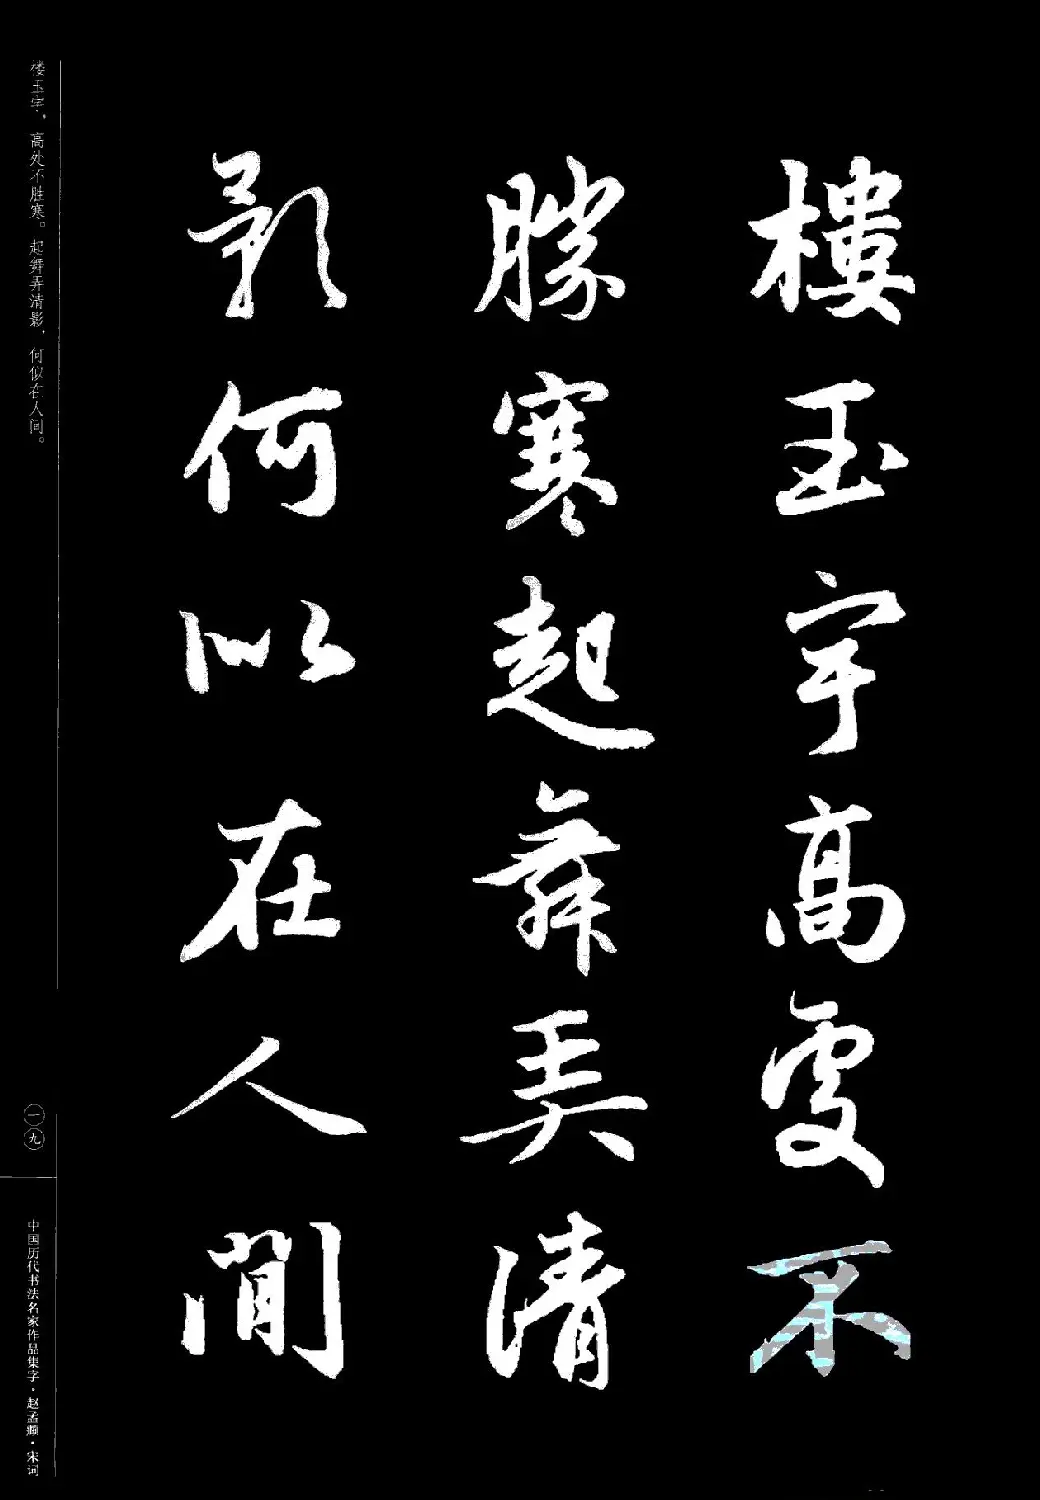 樓玉宇高處不
勝寒起舞弄清
影何以在人間
楼玉宇，高处不胜寒。起舞弄清影，何似在人间。
一九
中国历代书法名家作品集字·赵孟頫·宋词